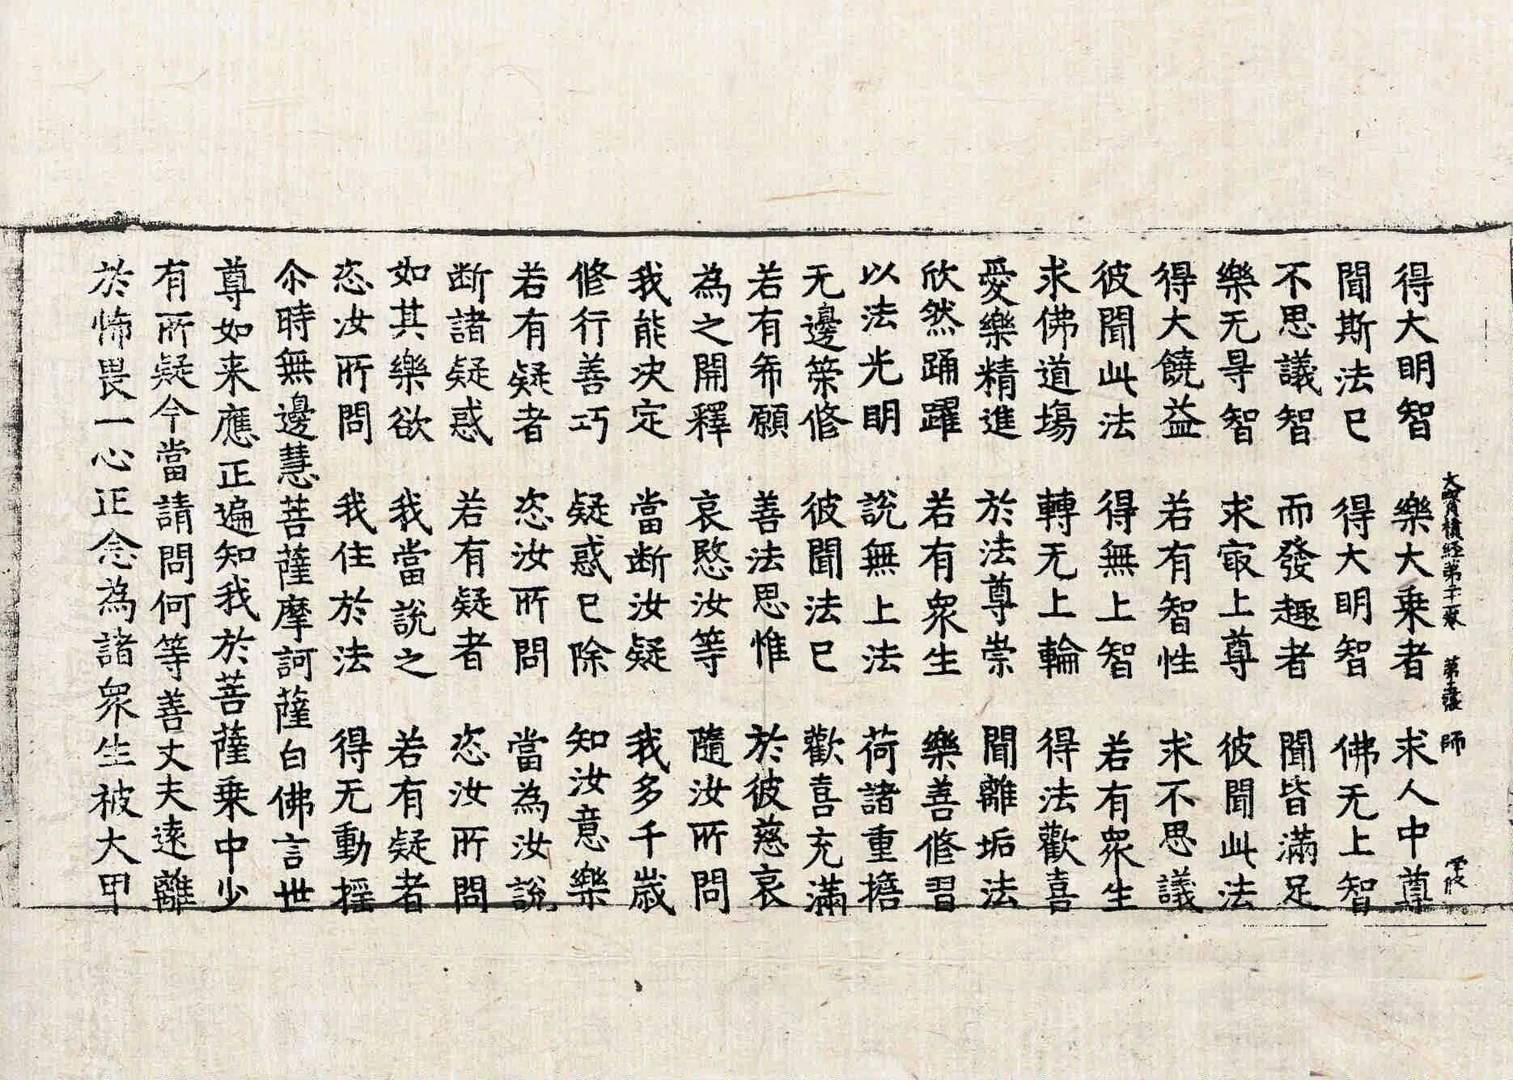 得大明智 樂大乗者 求人中尊
大寶積經第二十一卷 第五張 師
聞斯法已 得大明智 佛无上智
不思議智 而發趣者 聞皆滿足
樂无㝵智 求㝡上尊 彼聞此法
得大饒益 若有智性 求不思議
彼聞此法 得無上智 若有衆生
求佛道場 轉无上輪 得法歡喜
愛樂精進 於法尊崇 聞離垢法
欣然踊躍 若有衆生 樂善修習
以法光明 說無上法 荷諸重擔
无邊策修 彼聞法已 歡喜充滿
若有希願 善法思惟 於彼慈哀
為之開釋 哀愍汝等 隨汝所問
我能決定 當断汝疑 我多千歲
修行善巧 疑惑已除 知汝意樂
若有疑者 恣汝所問 當為汝說
断諸疑惑 若有疑者 恣汝所問
如其樂欲 我當說之 若有疑者
恣汝所問 我住於法 得无動揺
尒時無邊慧菩薩摩訶薩白佛言世
尊如来應正遍知我於菩薩乗中少
有所疑今當請問何等善丈夫遠離
於怖畏一心正念為諸衆生被大甲